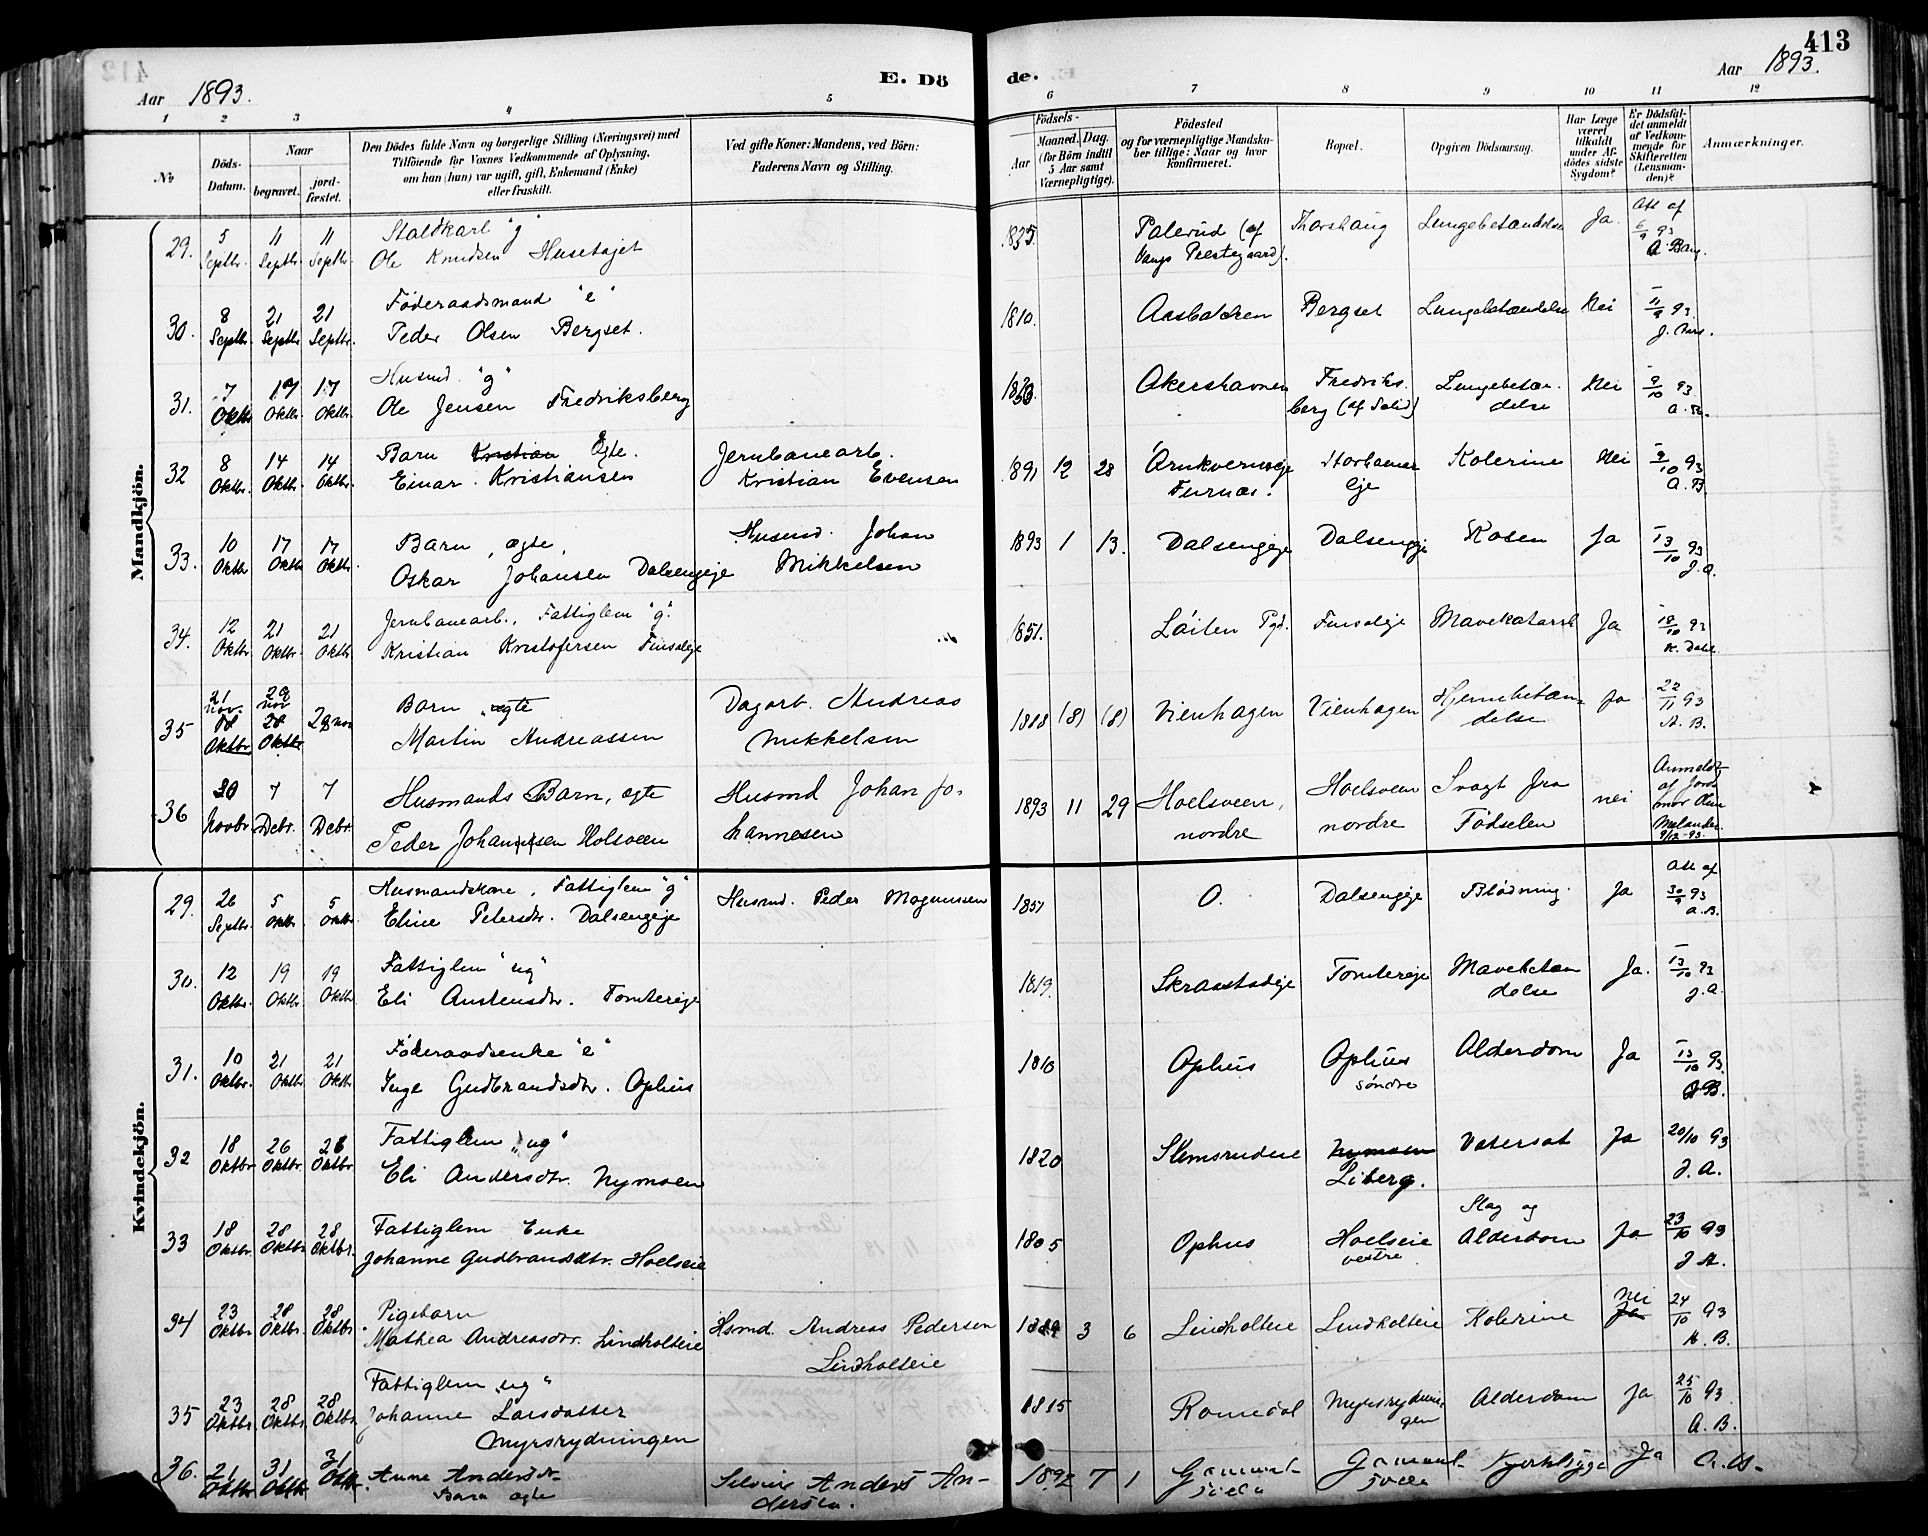 413
Aar 1893.
E. Dö
de.
Aar 1893.
1 2 3 4 5 6 7 8 9 10 11 12
No
Döds-Datum.
Naar
begravet.
jord-fæstet.
Den Dödes fulde Navn og borgerlige Stilling (Næringsvei) med
Tilföiende for Voxnes Vedkommende af Oplysning,
om han (hun) var ugift, gift, Enkemand (Enke)
eller fraskilt.
Ved gifte Koner: Mandens, ved Börn:
Faderens Navn og Stilling.
Födsels-
Aar
Maaned. Dag.
(for Börn indtil
5 Aar samt
Værnepligtige).
Födested
og for værnepligtige Mandska-
ber tillige: Naar og hvor
konfirmeret.
Bopæl.
Opgiven Dödsaarsag.
Har Læge
været
tilkaldt
under Af-
dödes sidste
Sygdom?
Er Dödsfal-
det anmeldt
af Vedkom-
mende for
Skifteretten
(Lensman-
den)?
Anmærkninger.
Mandkjön.
29. 5 Septbr. 11 Septbr. 11 Septbr. Staldkarl "g"
Ole Knudsen Husetøjet 1835. Palerud (af
Vangs Prestegaard). Thorshaug Lungebetændelse Ja. Att af 6/9 93
A. Bang.
30. 8 Septbr. 21 Septbr 21 Septbr. Føderaadsmand "e"
Peder Olsen Bergset. 1810. Aasbakken Bergset Lungebetændelse Nei 11/9 93.
31. 7 Oktbr 17 Oktbr. 17 Oktbr. Husmd. "g"
Ole Jensen Fredriksberg Akershavnen Fredriks-
berg Lungebetæn-
delse Nei 9/10 93.
32 8 Oktbr. 14 Oktbr. 14 Oktbr. Barn Kristian Ægte.
Einar Kristiansen Jernbanearb.
Kristian Evensen 1891 12 28 Arnkverneje
Furnæs. Storhamar
Eje Kolerine Nei 9/10 93
A. B.
33. 10 Oktbr 17 Oktbr 17 Oktbr. Barn, ægte,
Oskar Johansen Dalsengeje Husmd. Johan
Mikkelsen 1893 1 13. Dalsengeje Dalsengeje Rosen Ja 13/10 93
J. A.
34. 12 Oktbr. 21 Oktbr. 21 Oktbr. Jernbanearb., Fattiglem "g".
Kristian Kristofersen Finsaleje 1851. Løiten Pgd. Finsaleje Mavekatarrh Ja 18/10 93
K. Dahl.
35 21 nov. 18 Oktbr 29 nov 28 Oktbr 29 nov Barn ægte
Martin Andreassen Dagarb. Andreas
Mikkelsen 1888 (8) (8) Vienhagen Vienhagen Hjernebetæn-
delse Ja 22/11 93
A. B.
36 30 Novbr. 7 Debr. 7 Debr. Husmands Barn, ægte
Peder Johannesen Holsveen Husmd Johan Jo-
hannesen 1893 11 29 Hoelsveen,
nordre Hoelsveen
nordre Svagt fra
Fødselen nei Anmeldt
af Jord-
mor
9/12-93.
Kvindekjön.
29. 26 Septbr. 5 Oktbr. 5 Oktbr. Husmandskone, Fattiglem "g"
Eline Petersdr. Dalsengeje Husmd. Peder Magnussen 1857 O. Dalsengeje Blødning. Ja Att af
30/9 93
A. B.
30. 12 Oktbr. 19 Oktbr. 19 Oktbr Fattiglem "ug"
Eli Austensdr. Tomtereje 1819. Skraastadeje Tomtereje Mavebetæn
delse Ja. 13/10 93
J. A.
31. 10 Oktbr. 21 Oktbr. 21 Oktbr. Føderaadsenke "e"
Inge Gudbrandsdtr. Ophus 1810 Ophus Ophus
søndre Alderdom Ja 13/10 93.
32 18 Oktbr 26 Oktbr. 26 Oktbr. Fattiglem "ug"
Eli Andersdtr. Nymoen 1820 Slemsrudeie Nymoen
Liberg. Vatersot Ja 20/10 93
J. A.
33 18 Oktbr. 28 Oktbr. 28 Oktbr. Fattiglem Enke
Johanne Gudbrandsdtr. Hoelseie 1805 Ophus Hoelseie
vestre Slag og
Alderdom Ja 23/10 93
J. A.
34 23 Oktbr. 28 Oktbr. 28 Oktbr. Pigebarn
Mathea Andreasdtr. Lindholteie Hsmd. Andreas Pedersen
Lindholteie 1889 3 6 Lindholteie Lindholteie Kolerine Nei Ja 24/10 93
A. B.
35 23 Oktbr 28 Oktbr. 28 Oktbr. Fattiglem "ug"
Johanne Larsdatter
Myrsrydningen 1815 Romedal Myrsrydnin-
gen Alderdom Ja 25/10 93
A. B.
36. 21 Oktbr 31 Oktbr 31 Oktbr. Anne Andersdtr
Barn ægte Selveier Anders An-
dersen. 1892 7 1 Ja